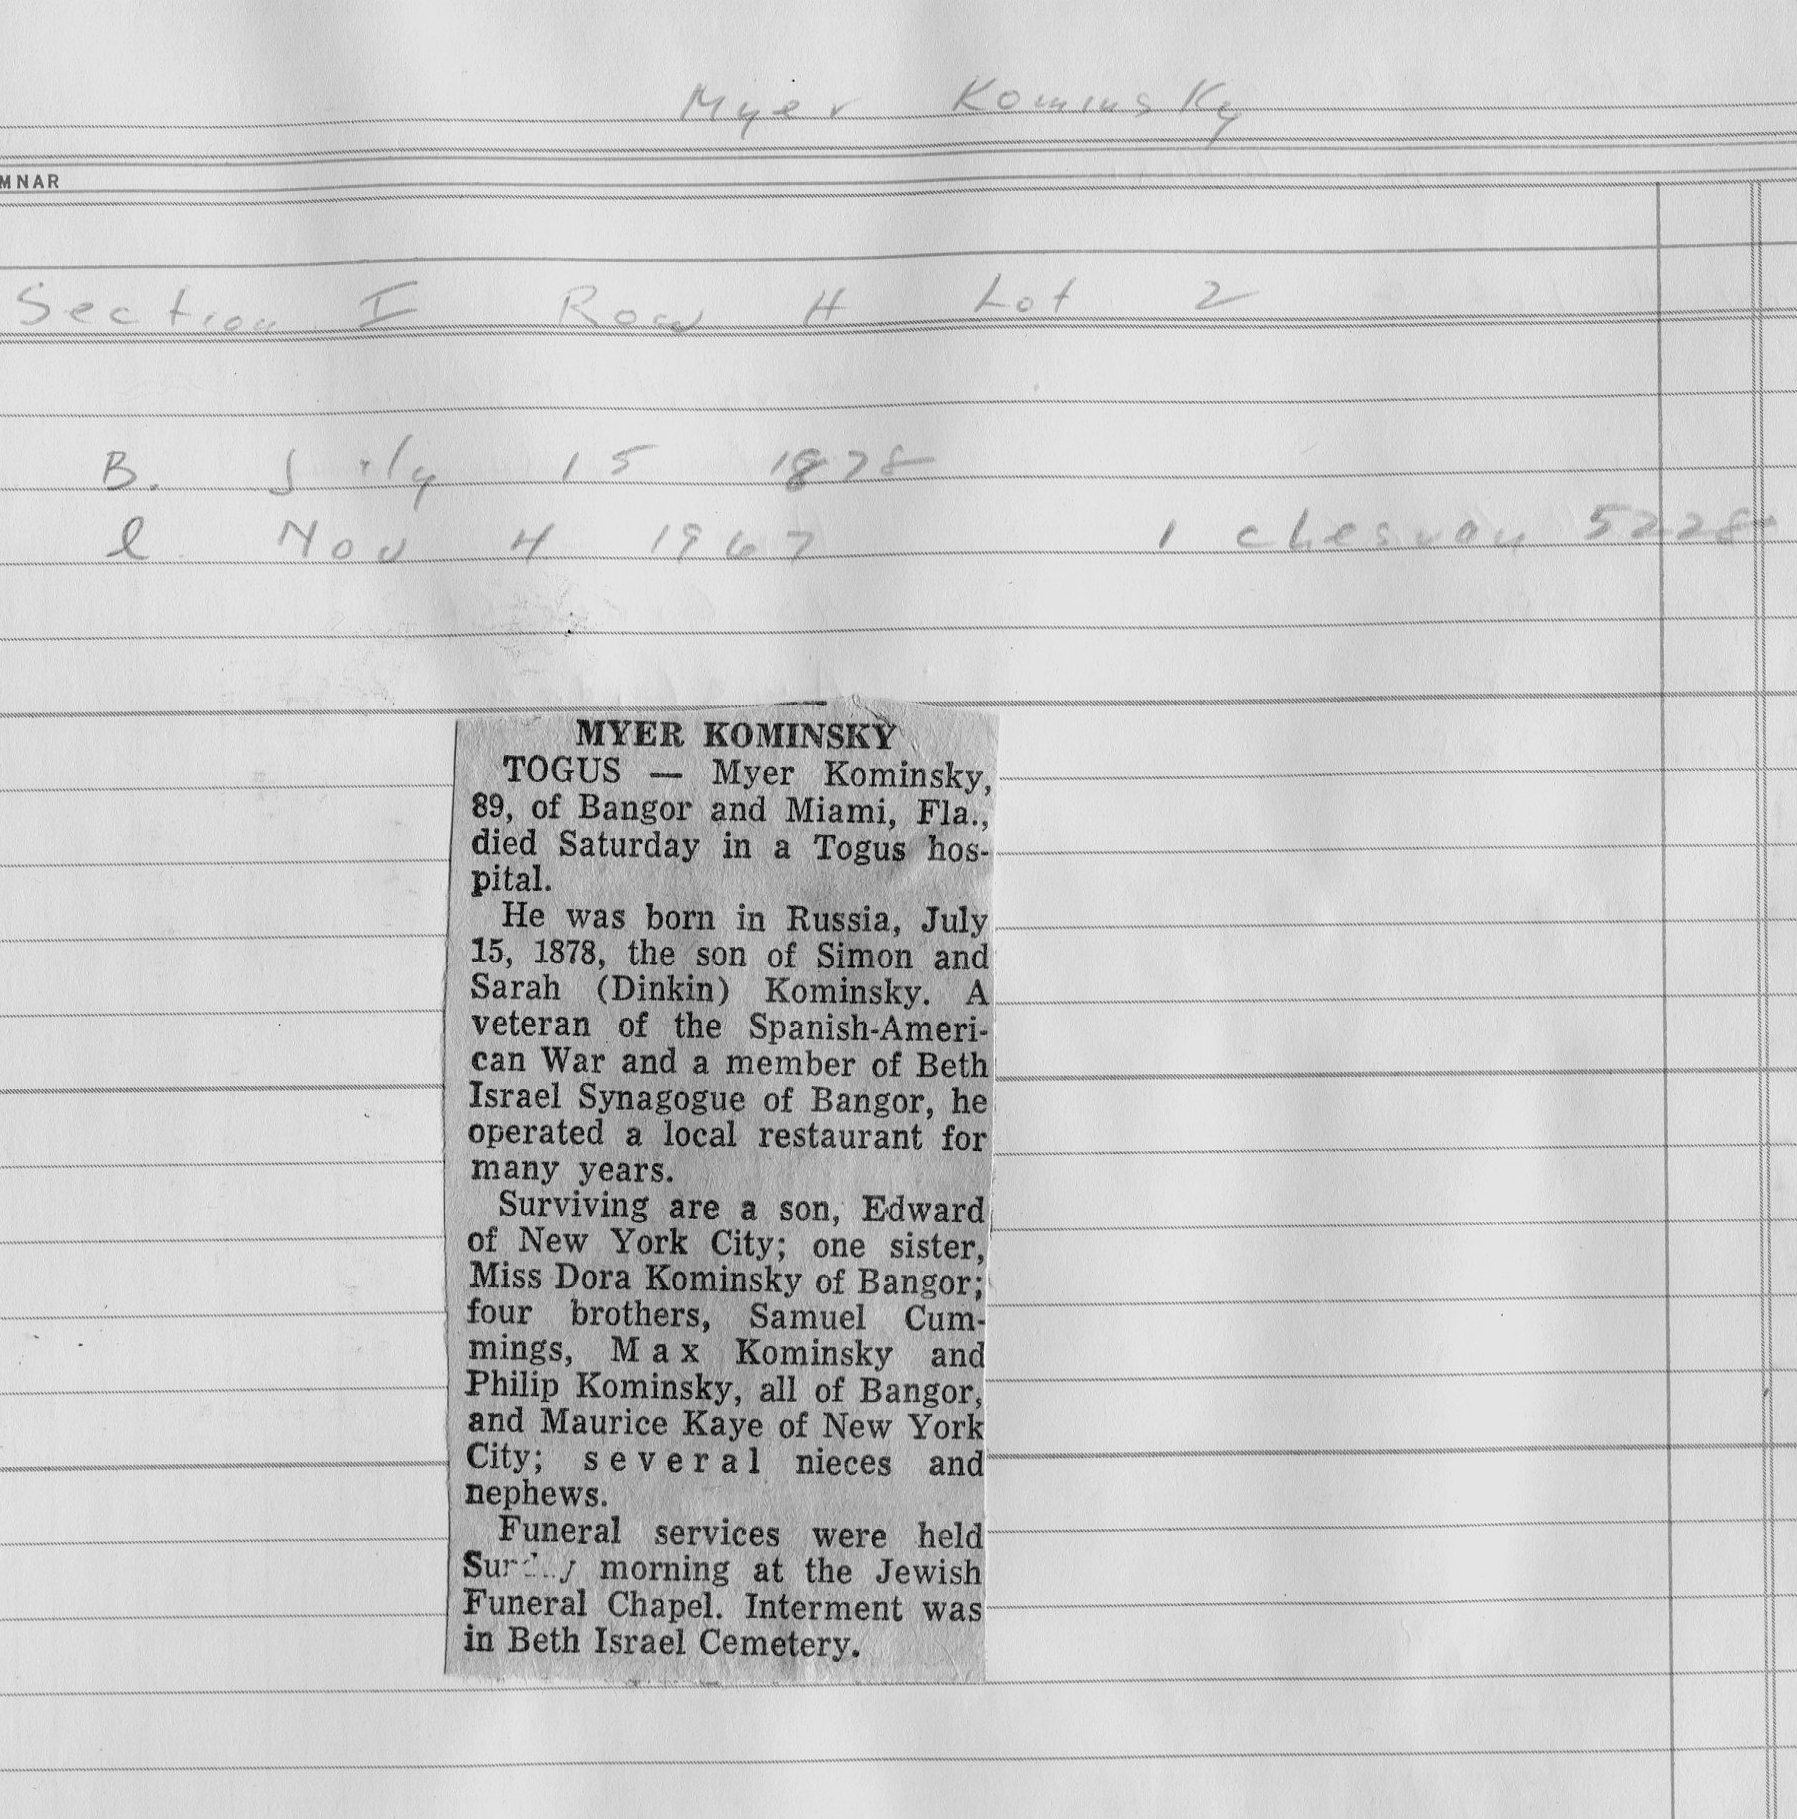 Myer Kominsky
MNAR
Section I Row H Lot 2
B. July 15 1878
d. Nov 4 1967 1 chesvan 5228
MYER KOMINSKY
TOGUS — Myer Kominsky,
89, of Bangor and Miami, Fla.,
died Saturday in a Togus hos-
pital.
He was born in Russia, July
15, 1878, the son of Simon and
Sarah (Dinkin) Kominsky. A
veteran of the Spanish-Ameri-
can War and a member of Beth
Israel Synagogue of Bangor, he
operated a local restaurant for
many years.
Surviving are a son, Edward
of New York City; one sister,
Miss Dora Kominsky of Bangor;
four brothers, Samuel Cum-
mings, Max Kominsky and
Philip Kominsky, all of Bangor,
and Maurice Kaye of New York
City; several nieces and
nephews.
Funeral services were held
Sunday morning at the Jewish
Funeral Chapel. Interment was
in Beth Israel Cemetery.